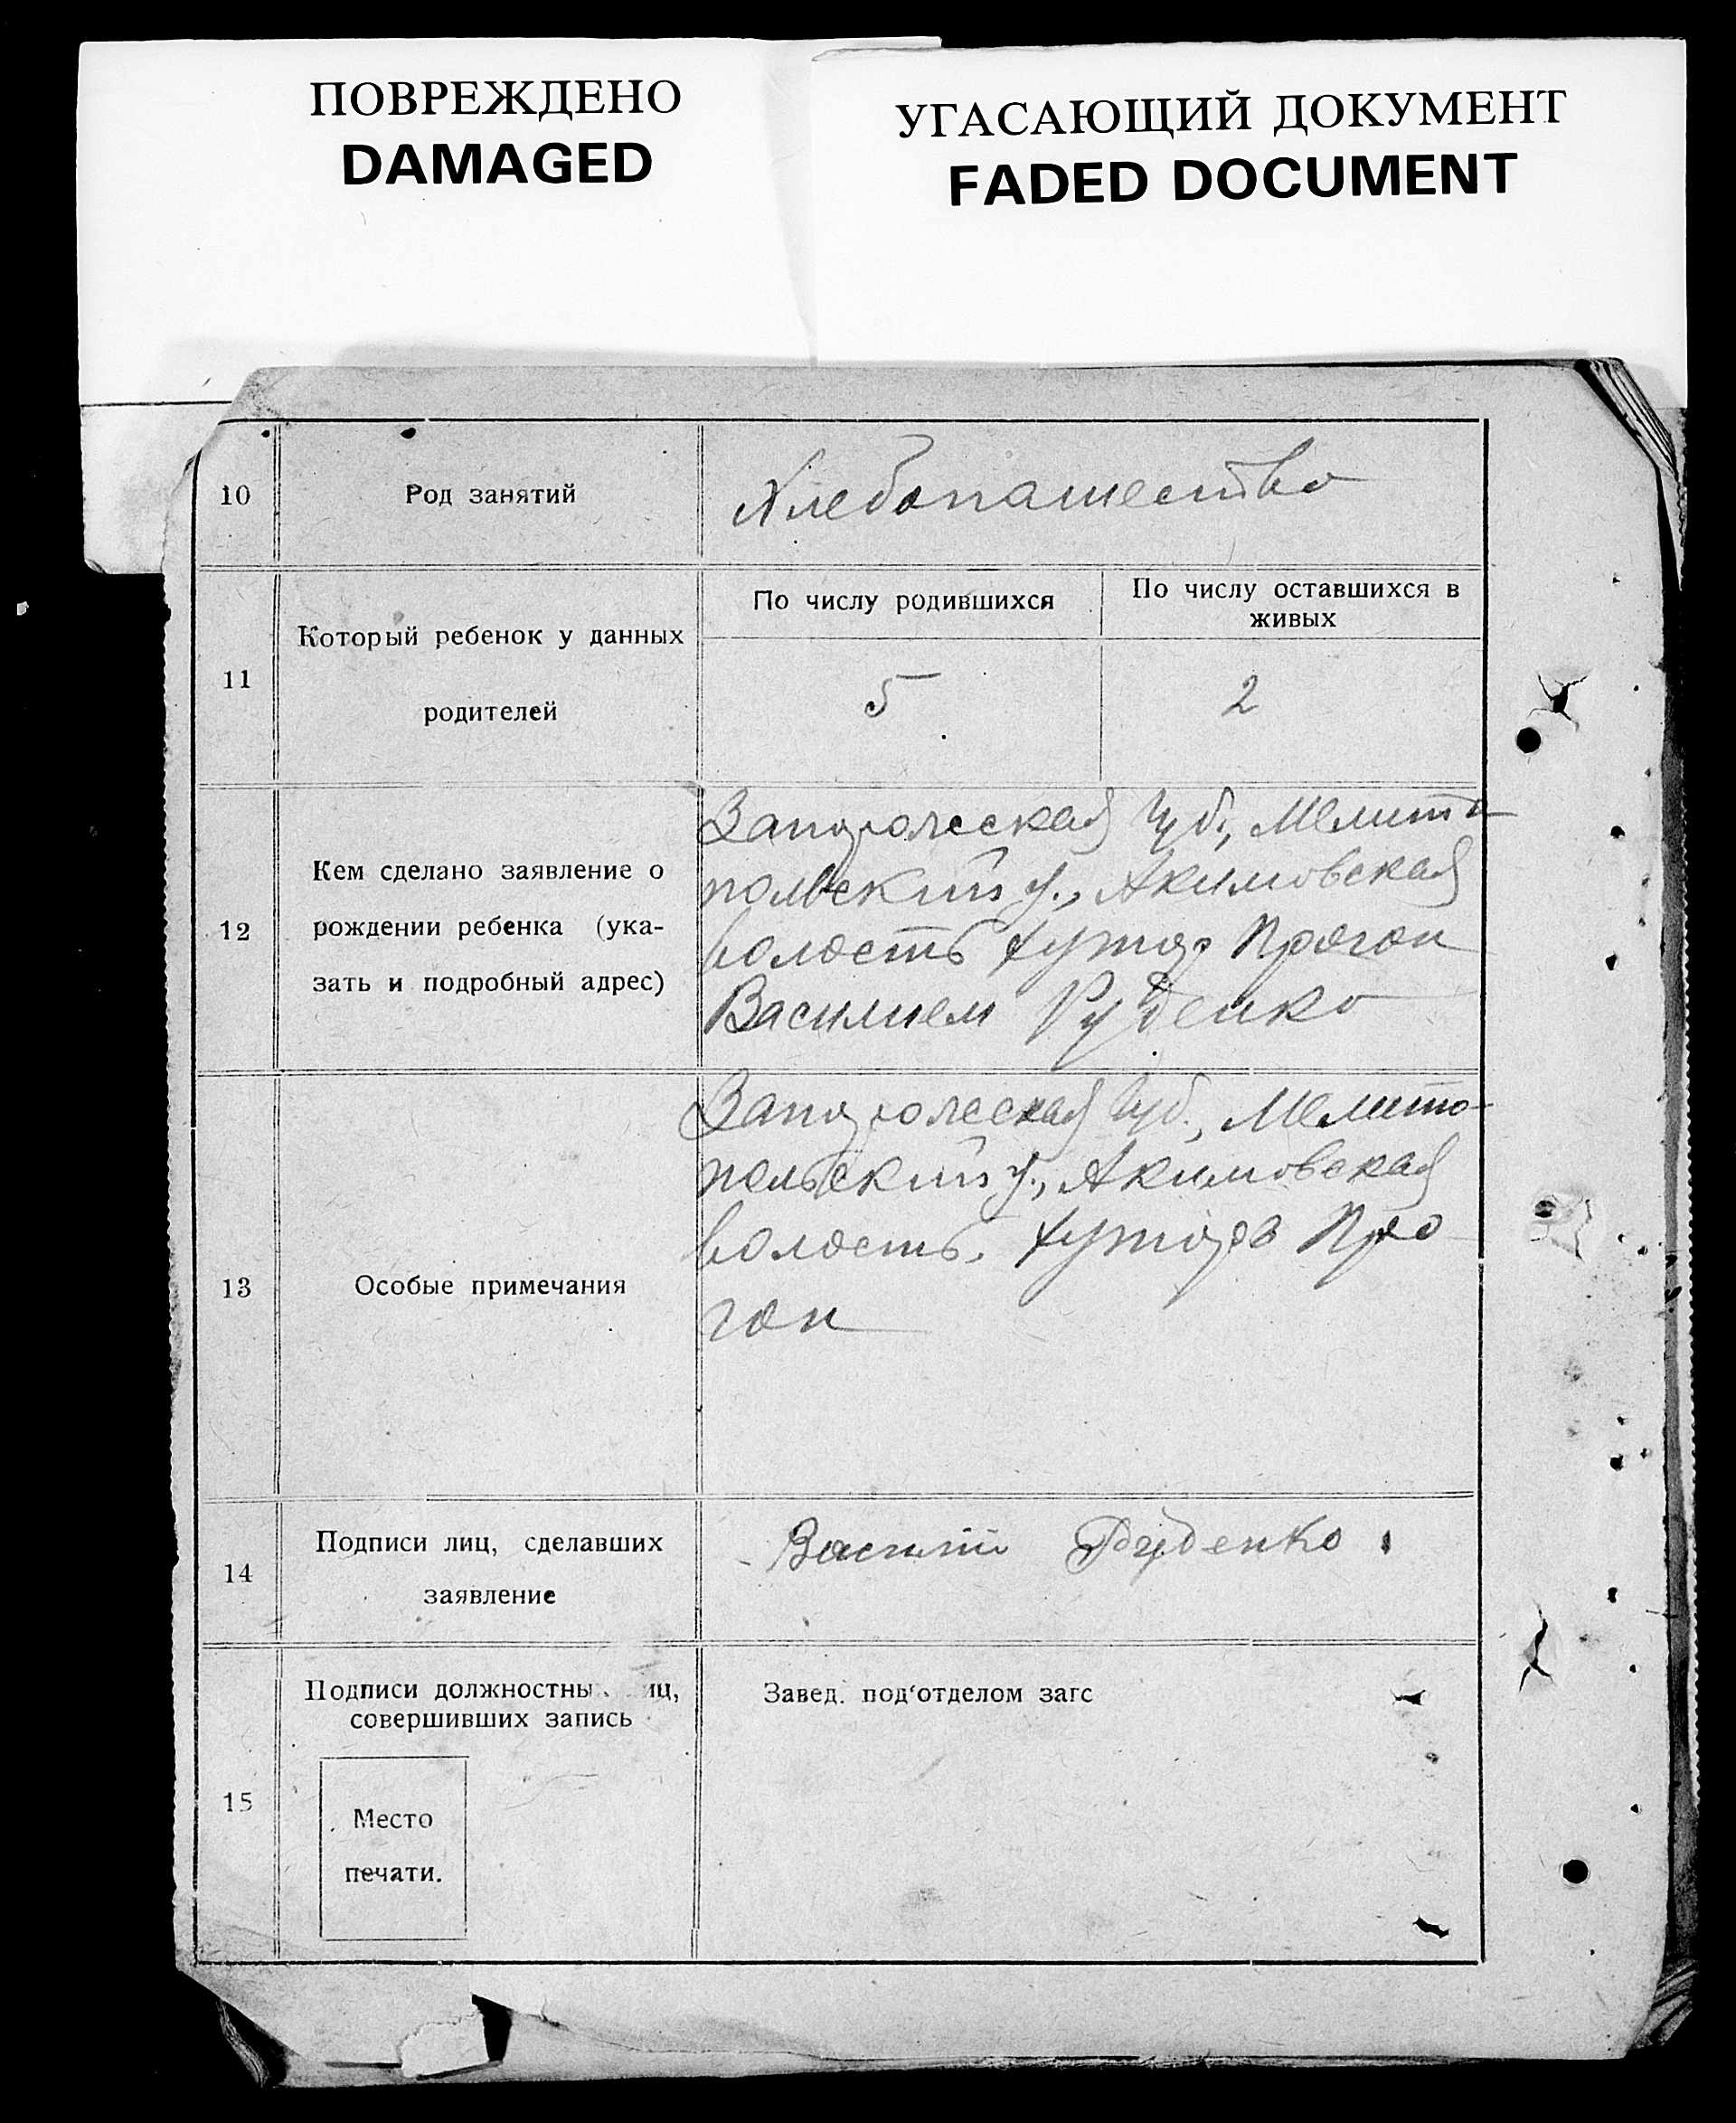 ПОВРЕЖДЕНО
DAMAGED
УГАСАЮЩИЙ ДОКУМЕНТ
FADED DOCUMENT
10
Род занятий
Хлебопашество
11
Который ребенок у данных
родителей
По числу родившихся
По числу оставшихся в
живых
5
2
12
Кем сделано заявление о
рождении ребенка (ука-
зать и подробный адрес)
Запорожская губ., Мелито-
польский у., Акимовская
волость хутор Прогон
Василием Руденко
13
Особые примечания
Запорожская губ., Мелито-
польский у., Акимовская
волость, хутор Про-
гон
14
Подписи лиц, сделавших
заявление
Василий Руденко
15
Подписи должностны иц,
совершивших запись
Место
печати.
Завед. под'отделом загс